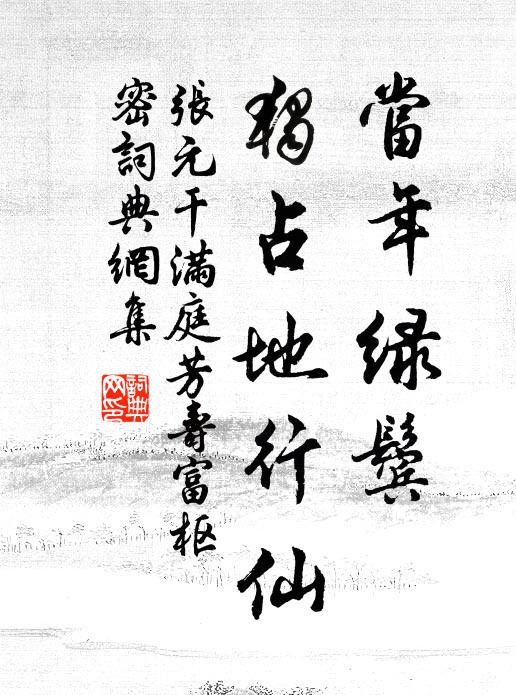 當年绿鬓
獨占地行仙
張元干滿庭芳壽富枢
密詞典網集
詞典
网印